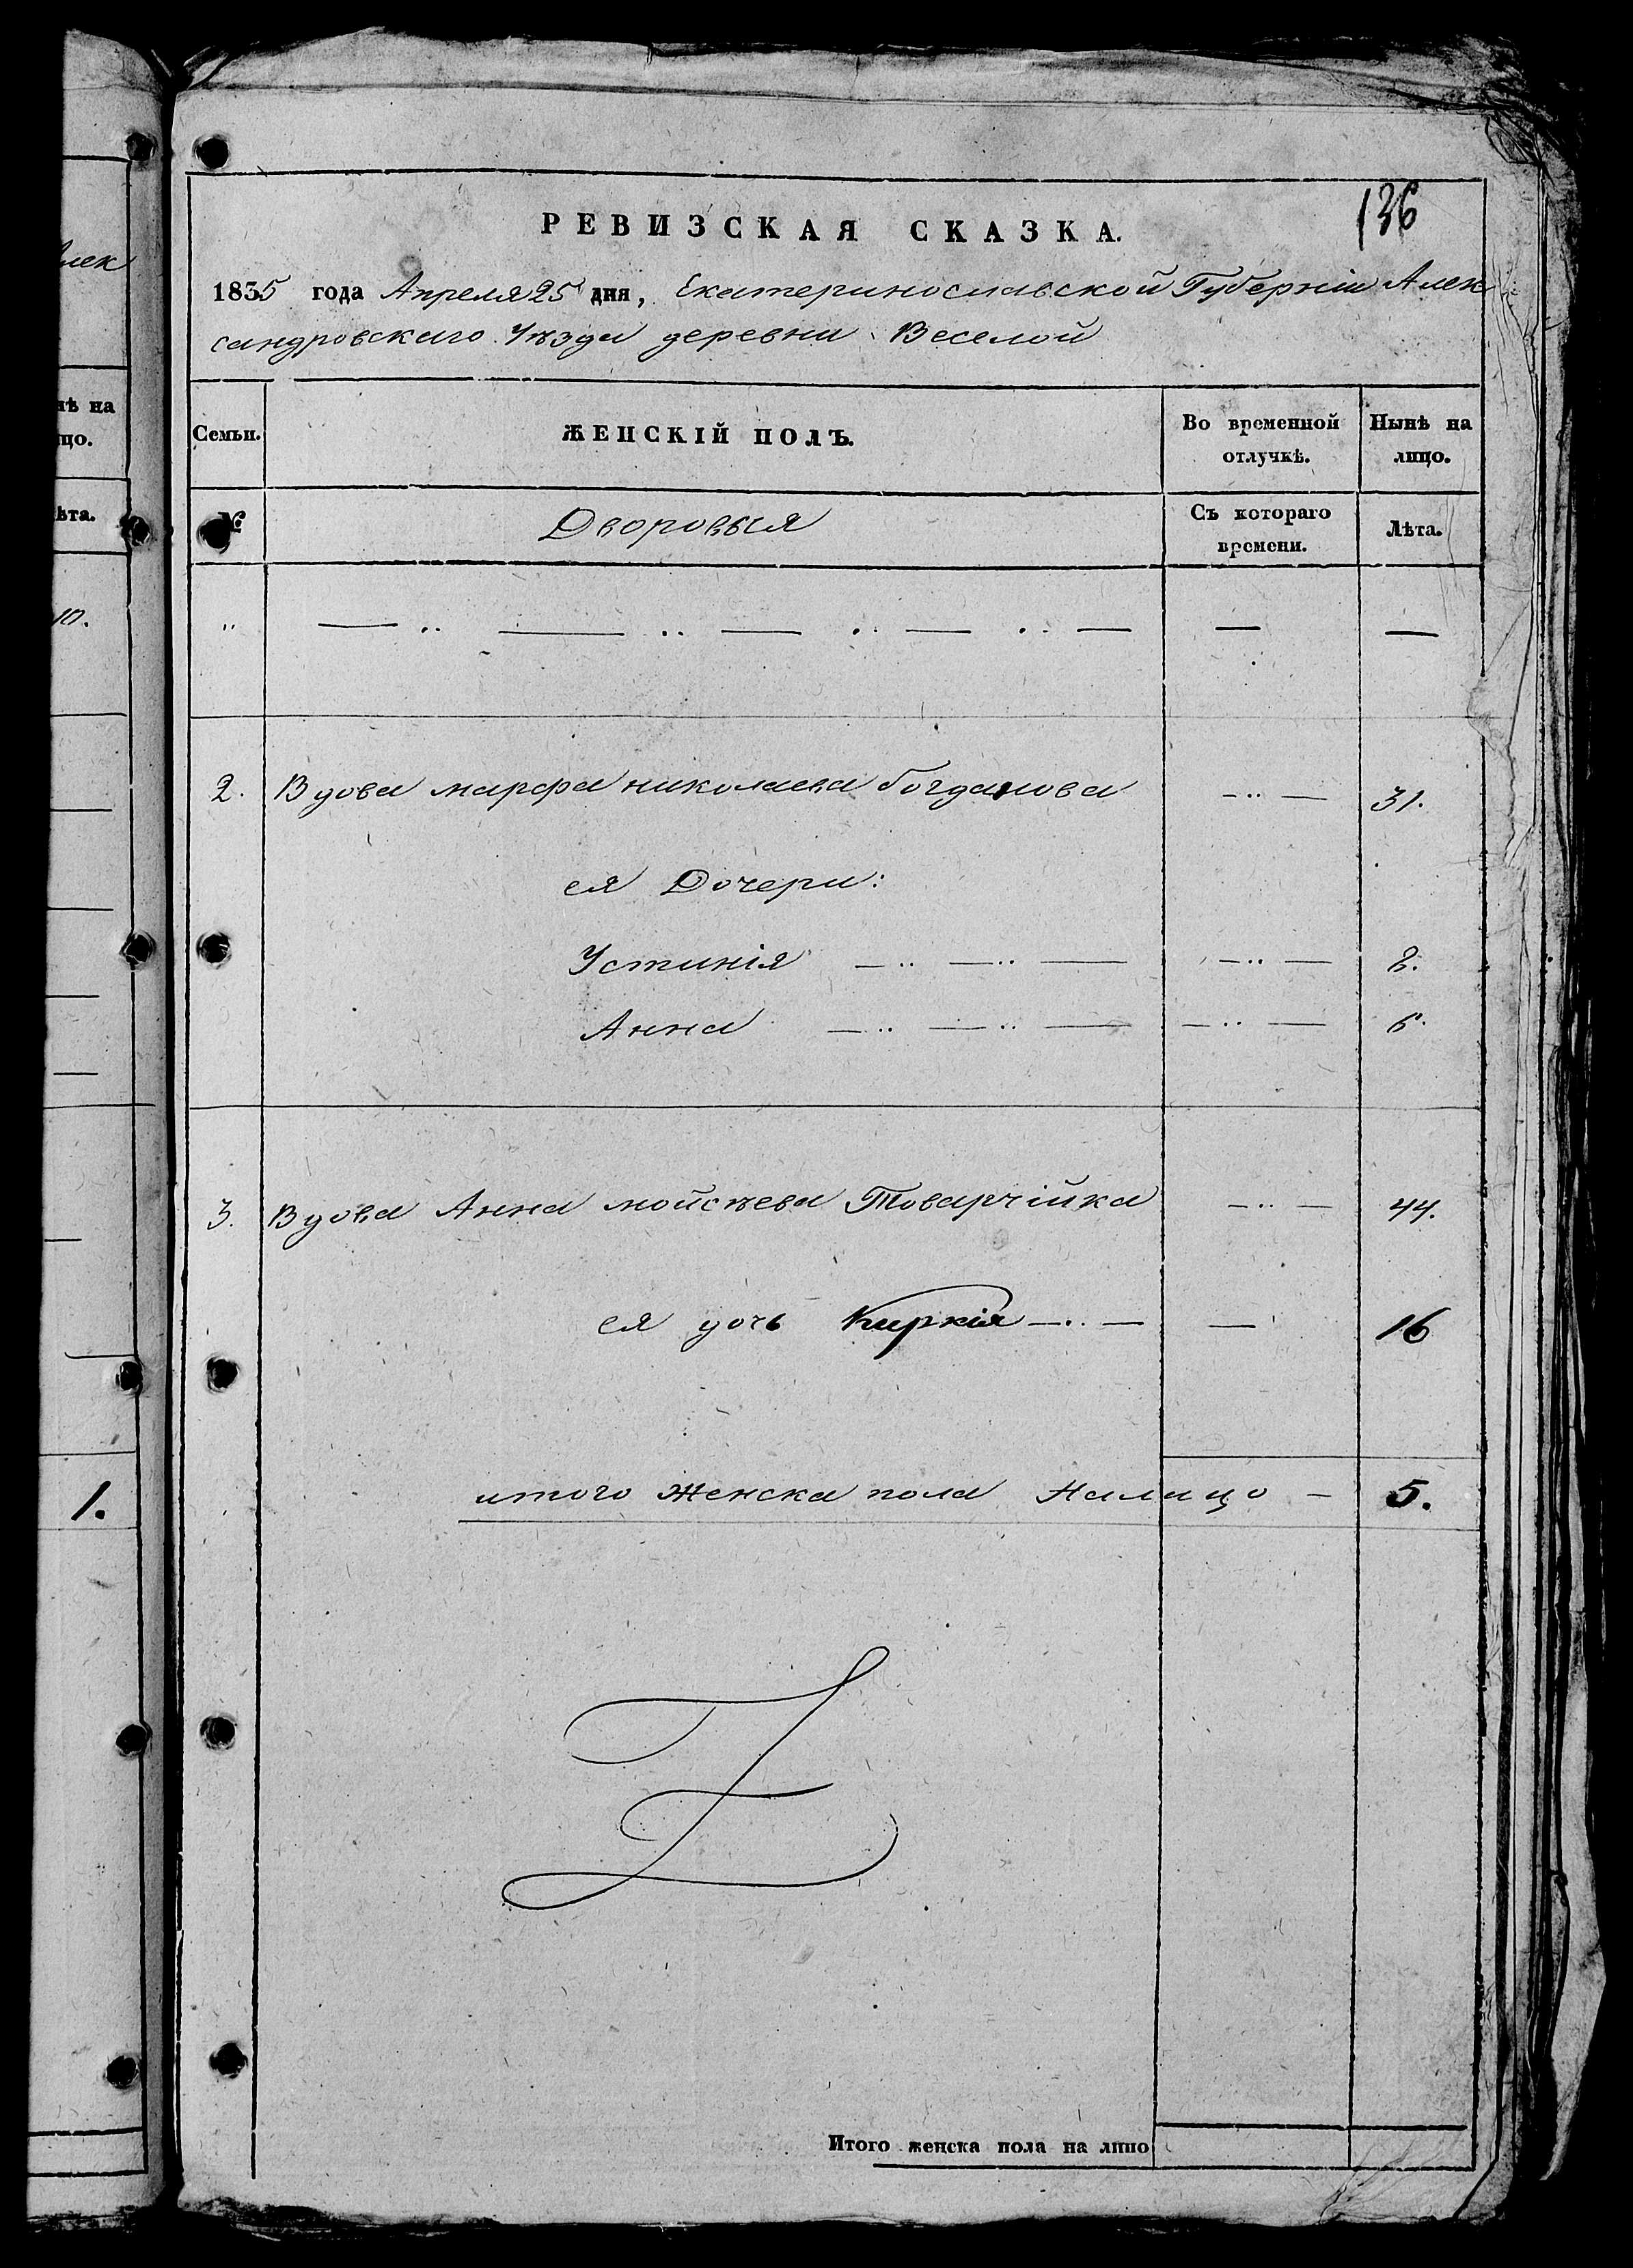 лек
нѣ на
цо.
ѣта.
10.
1.
136
РЕВИЗСКАЯ СКАЗКА.
1835 года Апреля 25 дня, Екатеринославской Губерніи Алек
сандровскаго Уѣзда деревни Веселой
Семьи. ЖЕНСКІЙ ПОЛЪ. Во временной отлучкѣ. Нынѣ на лицо.
№ Дворовыя Съ котораго времени. Лѣта.
„ — „ — „ — „ — „ — — —
2. Вдова марфа николаева богданова — „ — 31.
ея Дочери:
Устинія — „ — „ — — „ — 8.
Анна — „ — „ — — „ — 6.
3. Вдова Анна мойсѣева Товарчійка — „ — 44.
ея дочь — „ — — 16
итого Женска пола Налицо — 5.
Итого женска пола на лицо